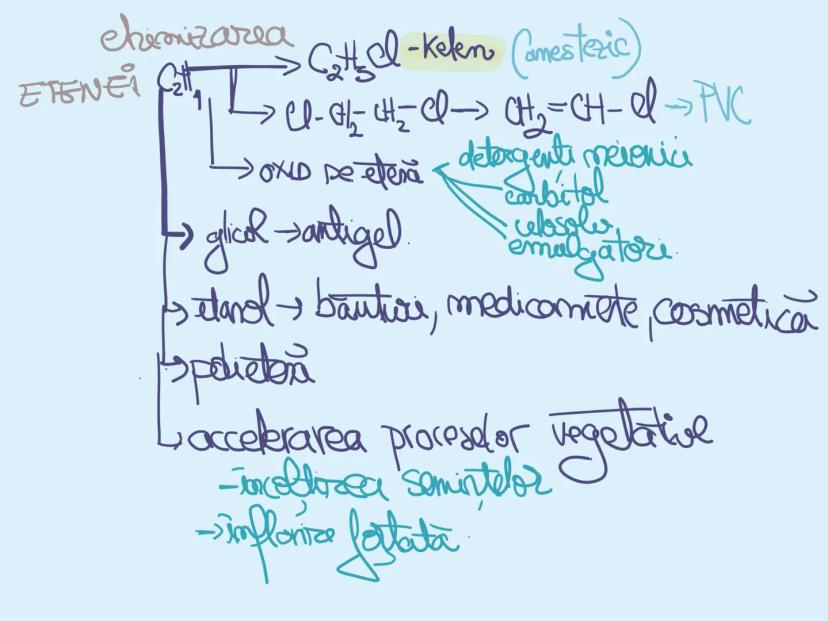 chimizarea
ETENEI
C₂H₄ → C₂H₅Cl - Kelen (anestezic)
→ Cl-CH₂-CH₂-Cl → CH₂=CH-Cl → PVC
→ OXID DE etenă
detergenți neionici
carbitol
celosolv
emulgatori
→ glicol → antigel
→ etanol → băuturi, medicamente, cosmetică
→ polietenă
→ accelerarea proceselor vegetative
- încolțirea semințelor
→ înflorire forțată